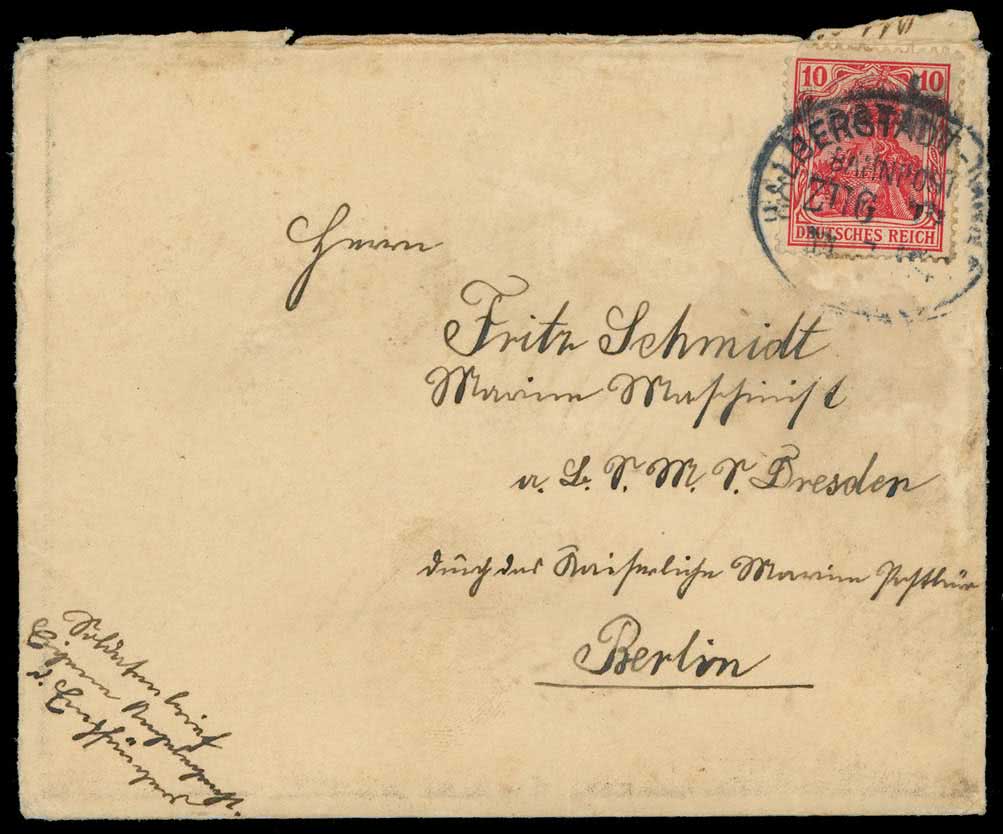 10 10
DEUTSCHES REICH
HALBERSTADT
BAHNPOST
ZUG
Herrn
Fritz Schmidt
Marine Maschinist
a. B. S. M. S. Dresden
durch das Kaiserliche Marine Postbüro
Berlin
Soldatenbrief
Eigene Angelegenht.
d. Empfängers